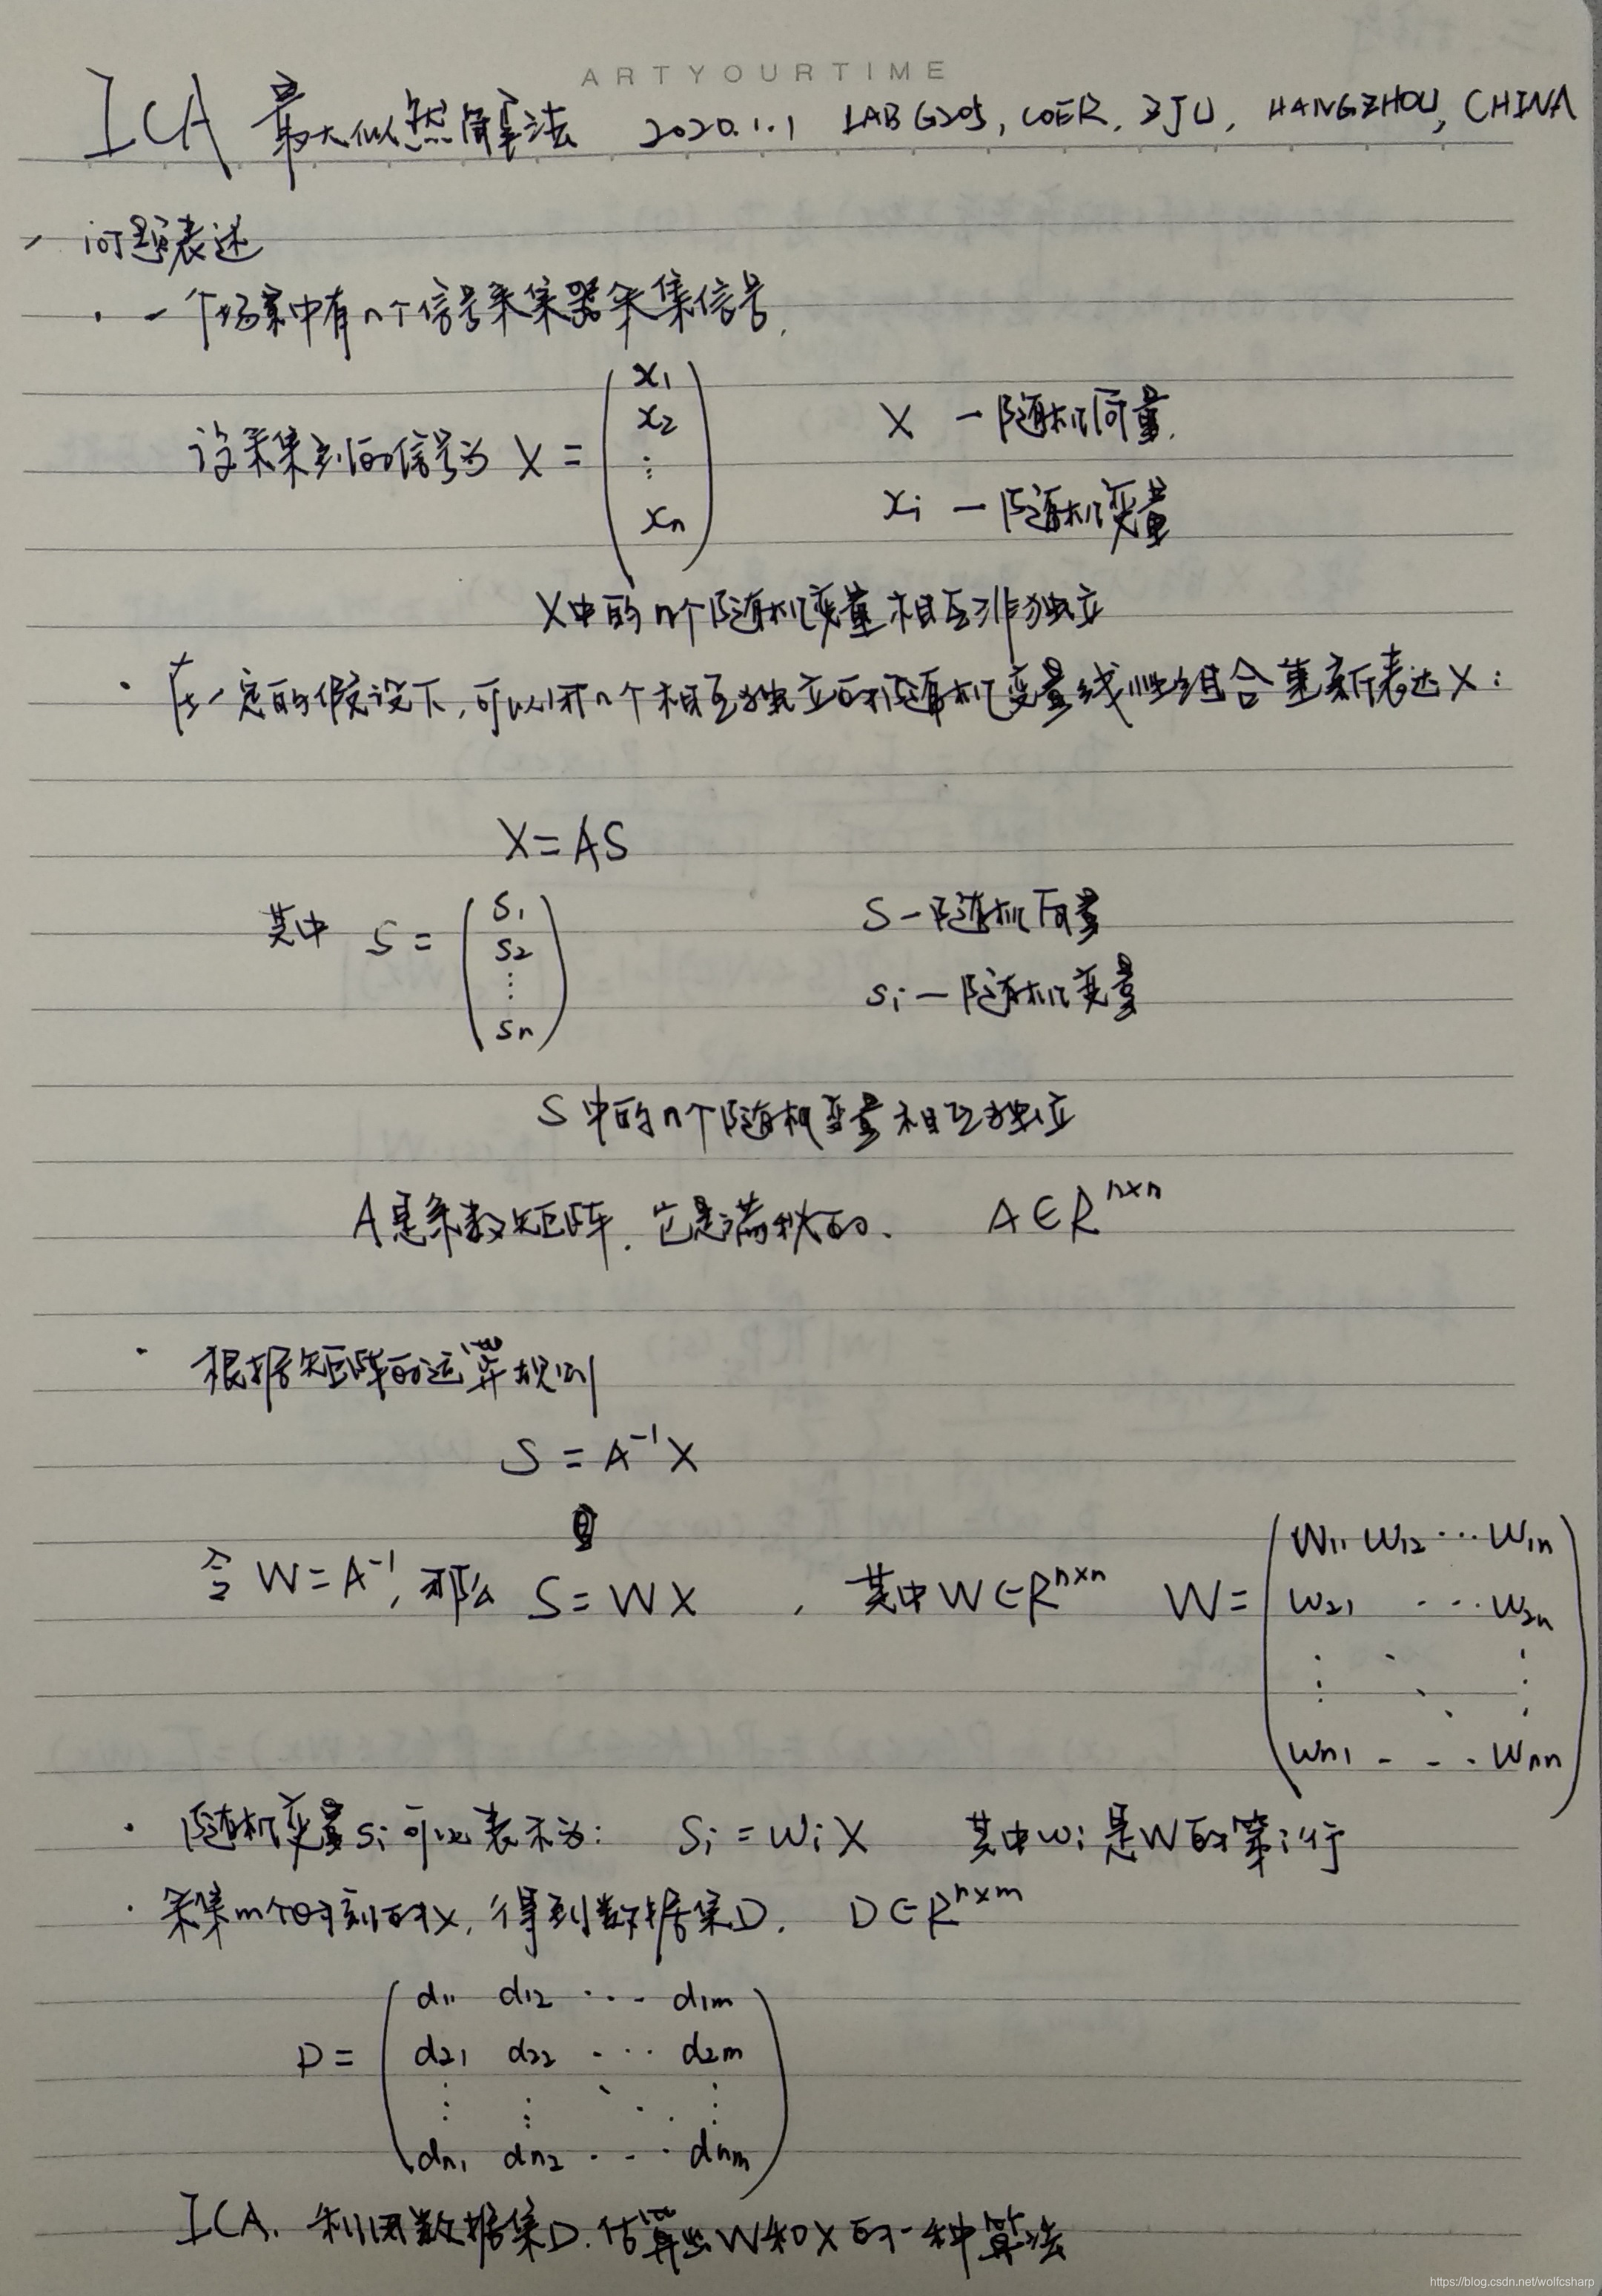 ARTYOURTIME
ICA 最大似然算法 2020.1.1 LAB G205, COER, ZJU, HANGZHOU, CHINA
一 问题表述
· 一个场景中有n个信号采集器采集信号.
设采集到的信号为 X = ( x1 x2 ⋮ xn )
X — 随机向量.
xi — 随机变量
X中的n个随机变量相互非独立
· 在一定的假设下,可以用n个相互独立的随机变量线性组合重新表达X:
X=AS
其中 S = ( s1 s2 ⋮ sn )
S — 随机向量
si — 随机变量
S中的n个随机变量相互独立
A是系数矩阵. 它是满秩的、 A∈R^{n×n}
· 根据矩阵的运算规则
S = A^{-1}X
令 W=A^{-1}, 那么 S=WX , 其中W∈R^{n×n} W=
( w11 w12 ··· w1n
w21 ··· w2n
⋮ ⋱ ⋮
wn1 ··· wnn )
· 随机变量si可以表示为: si = wiX 其中wi是W的第i行
· 采集m个时刻的X, 得到数据集D. D∈R^{n×m}
D =
( d11 d12 ··· d1m
d21 d22 ··· d2m
⋮ ⋮ ⋱ ⋮
dn1 dn2 ··· dnm )
ICA. 利用数据集D.估算出W和X的一种算法
https://blog.csdn.net/wolfcsharp